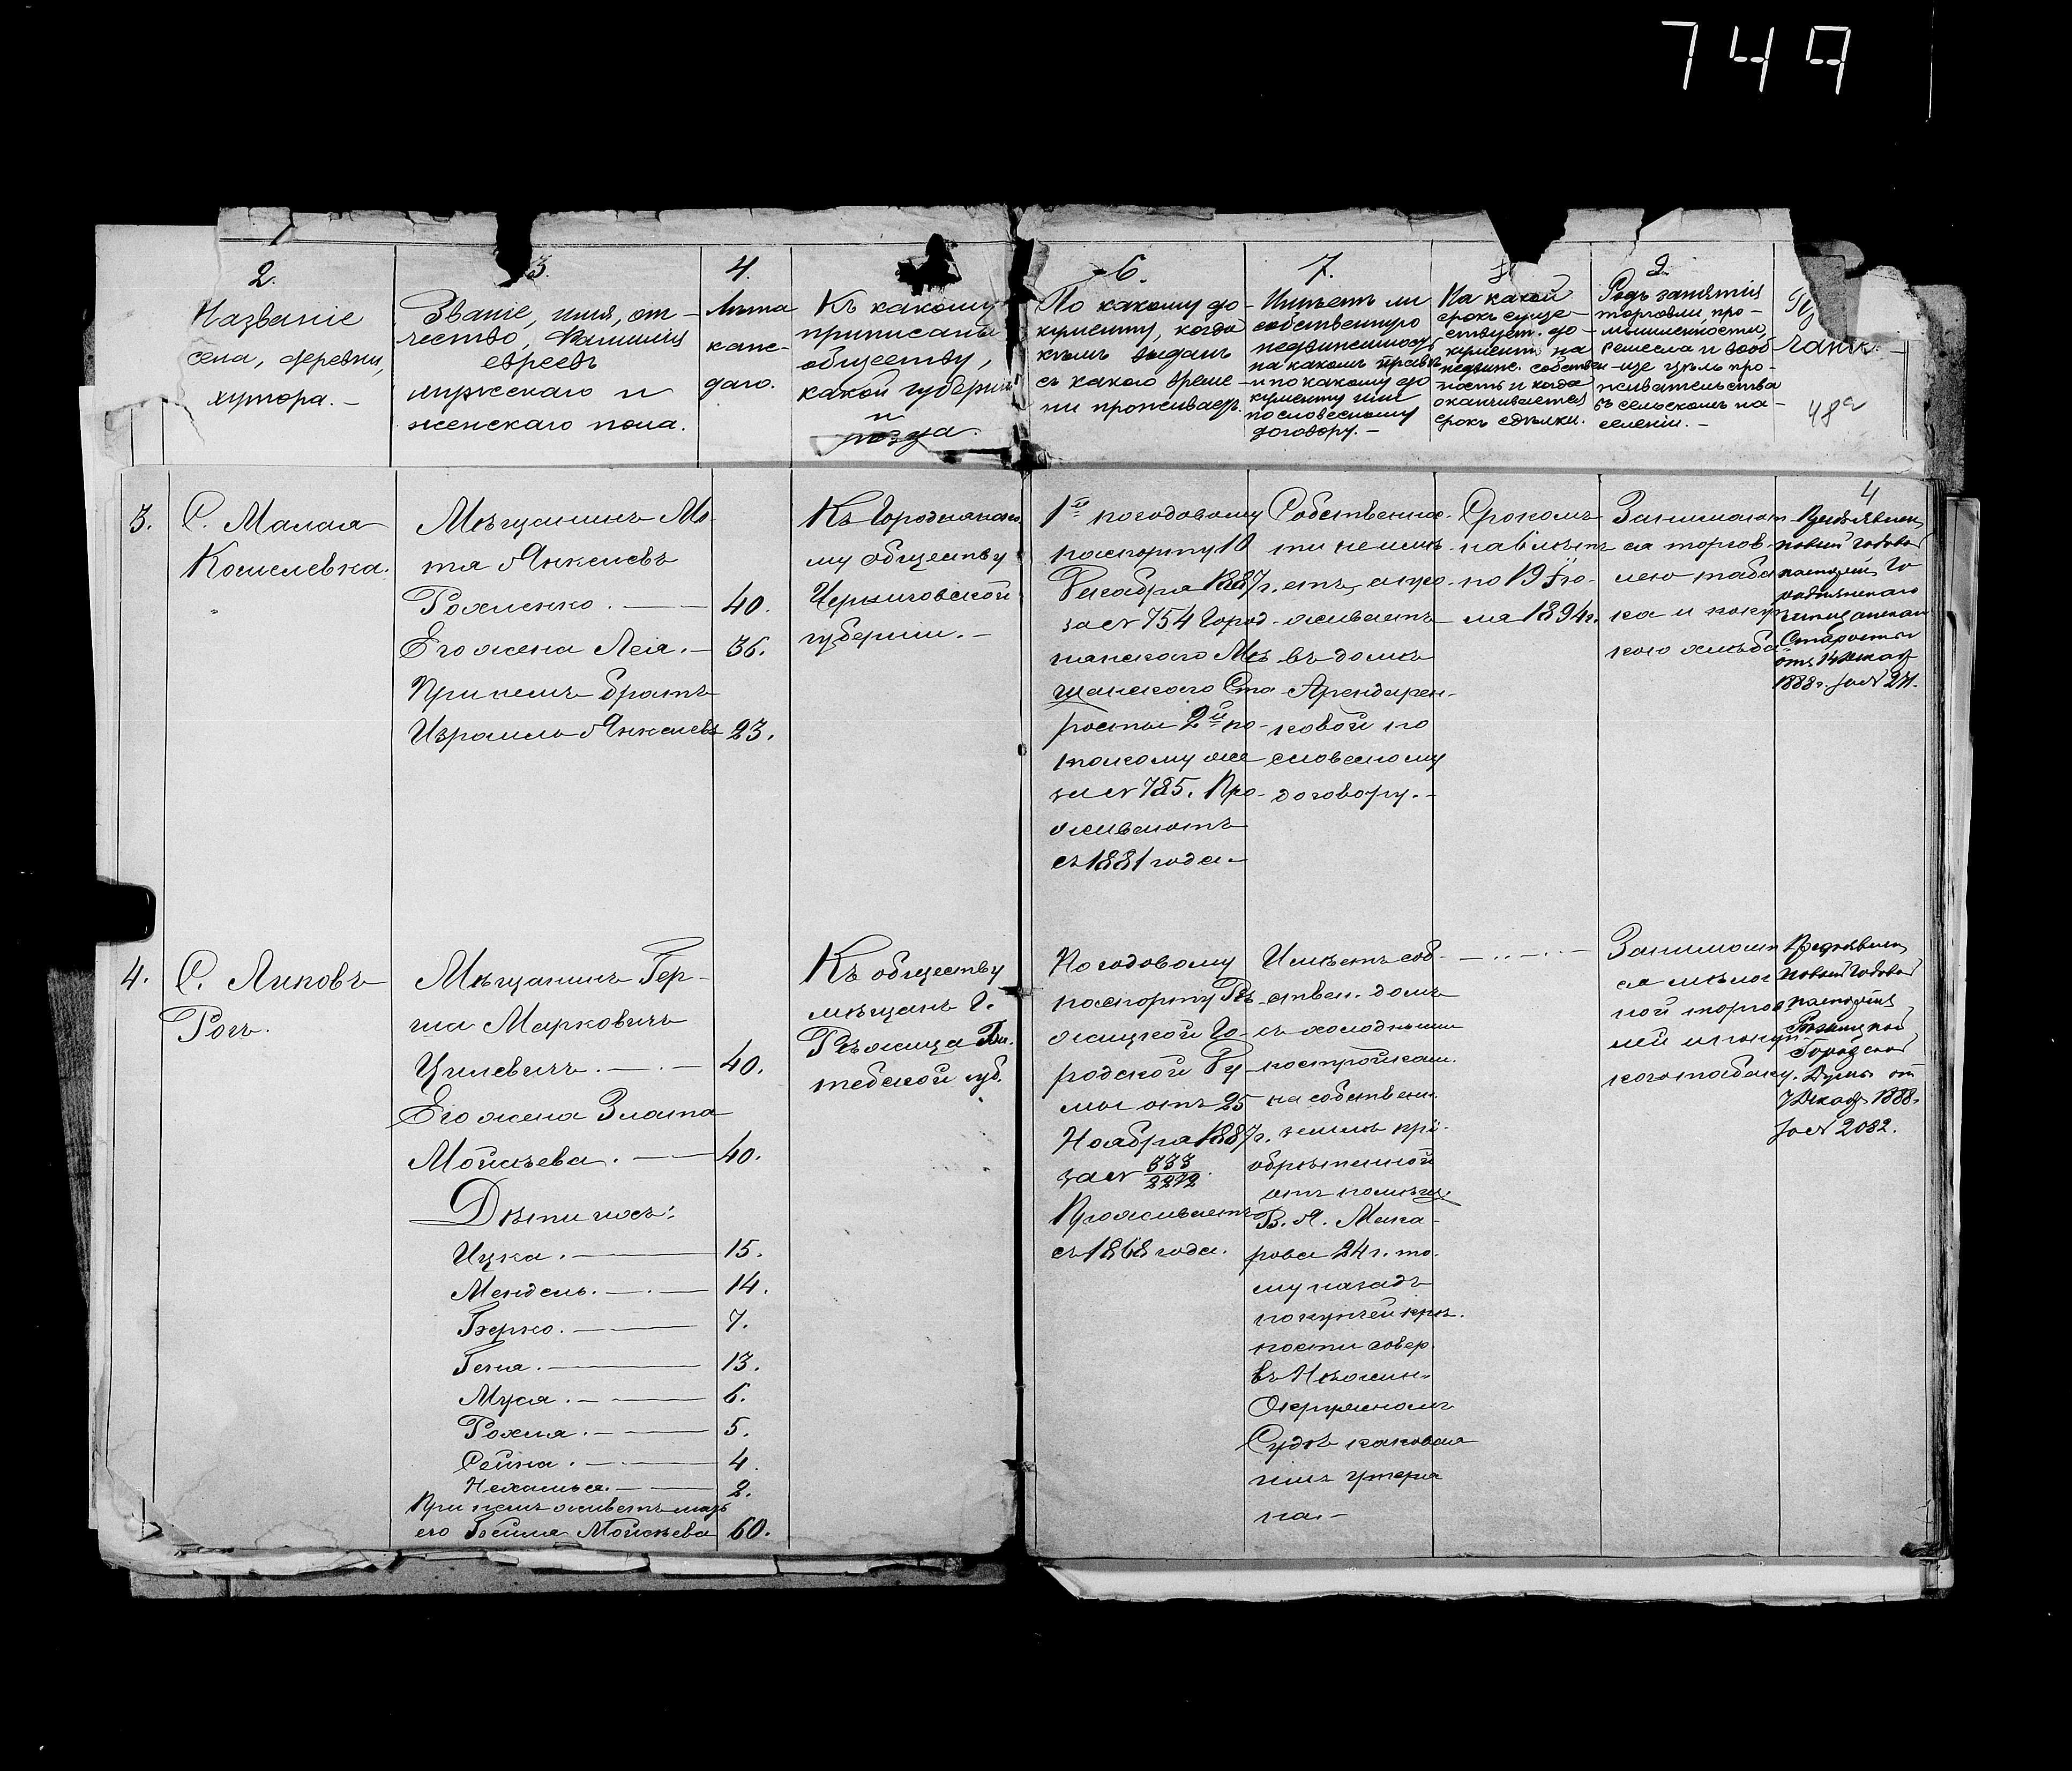 749
2.
Названіе
села, деревни,
хутора. —
3.
Званіе, имя, от-
чество, Фамилія
евреевъ
мужскаго и
женскаго пола.
4.
Лѣта
каж-
даго.
Къ какому
приписаны
обществу,
какой губерніи
и
уѣзда.
6.
По какому до-
кументу, когда
кѣмъ выданъ
съ какого време-
ни проживаетъ.
7.
Имѣетъ ли
собственную
недвижимость
на какомъ правѣ
и по какому до
кументу или
по словесному
договору. —
На какой
срокъ суще-
ствуетъ до-
кументъ на
недвиж. собствен-
ность и когда
оканчивается
срокъ сдѣлки.
9.
Родъ занятія
торговли, про-
мышленности,
ремесла и вооб-
ще цѣль про-
живательства
въ сельскомъ на-
селеніи. —
чанія. —
48а
4
3.
С. Малая
Кошелевка.
Мѣщанинъ Мо-
тя Янкелевъ
Рохленко. — 40.
Его жена Лея. — 36.
При немъ братъ
Израиль Янкелевъ 23.
Къ Городнянско
му обществу
Черниговской
губерніи. —
1й погодовому
паспорту 10
Декабря 1887г.
за № 754 Город-
нянскаго Мѣ
щанского Ста
росты 2й по-
такому же
за № 785. Про-
живаютъ
съ 1881 года. —
Собственнос-
ти не имѣ-
етъ, а про-
живаетъ
въ домѣ
Арендарен-
ковой по
словесному
договору. —
Срокомъ
на 6 лѣтъ
по 19 Ію-
ля 1894г.
Занимают
ся торгов-
лею таба
ка и покуп
кою хлѣба
Предъявлен
новый годовой
паспортъ Го
роднянскаго
мѣщанскаго
Старосты
отъ 14 Декаб
1888г. за № 271.
4.
С. Липовъ
Рогъ.
Мѣщанинъ Гер-
ша Марковичъ
Цилевичъ. — 40.
Его жена Злата
Мойсѣева. — 40.
Дѣти ихъ:
Ицка. — 15.
Мендель. — 14.
Берко. — 7.
Геня. — 13.
Муся. — 6.
Рохля. — 5.
Сейна. — 4
Нехамья. — 2.
При немъ живетъ мать
его Бейля Мойсѣева 60.
Къ обществу
мѣщанъ г.
Рѣжица Ви-
тебской губ.
По годовому
паспорту Рѣ-
жицкой Го-
родской Ду-
мы отъ 25
Ноября 1887г.
за № 333/2272.
Проживаетъ
съ 1868 года.
Имѣетъ соб-
ствен. домъ
съ холодными
постройками
на собствен.
землѣ прі-
обрѣтенной
отъ помѣщ.
В. Я. Мака-
рова 24 г. то-
му назадъ
по купчей крѣ-
пости совер.
въ Нѣжин.
Окружномъ
Судѣ каковая
имъ утеря
на. —
— .. — . —
Занимает
ся мѣлоч
ной торгов
лей и покуп
кого табаку.
Предъявлен
новый годовой
паспортъ
Рѣжицкой
Городской
Думы от
7 Декаб. 1888г.
за № 2082.